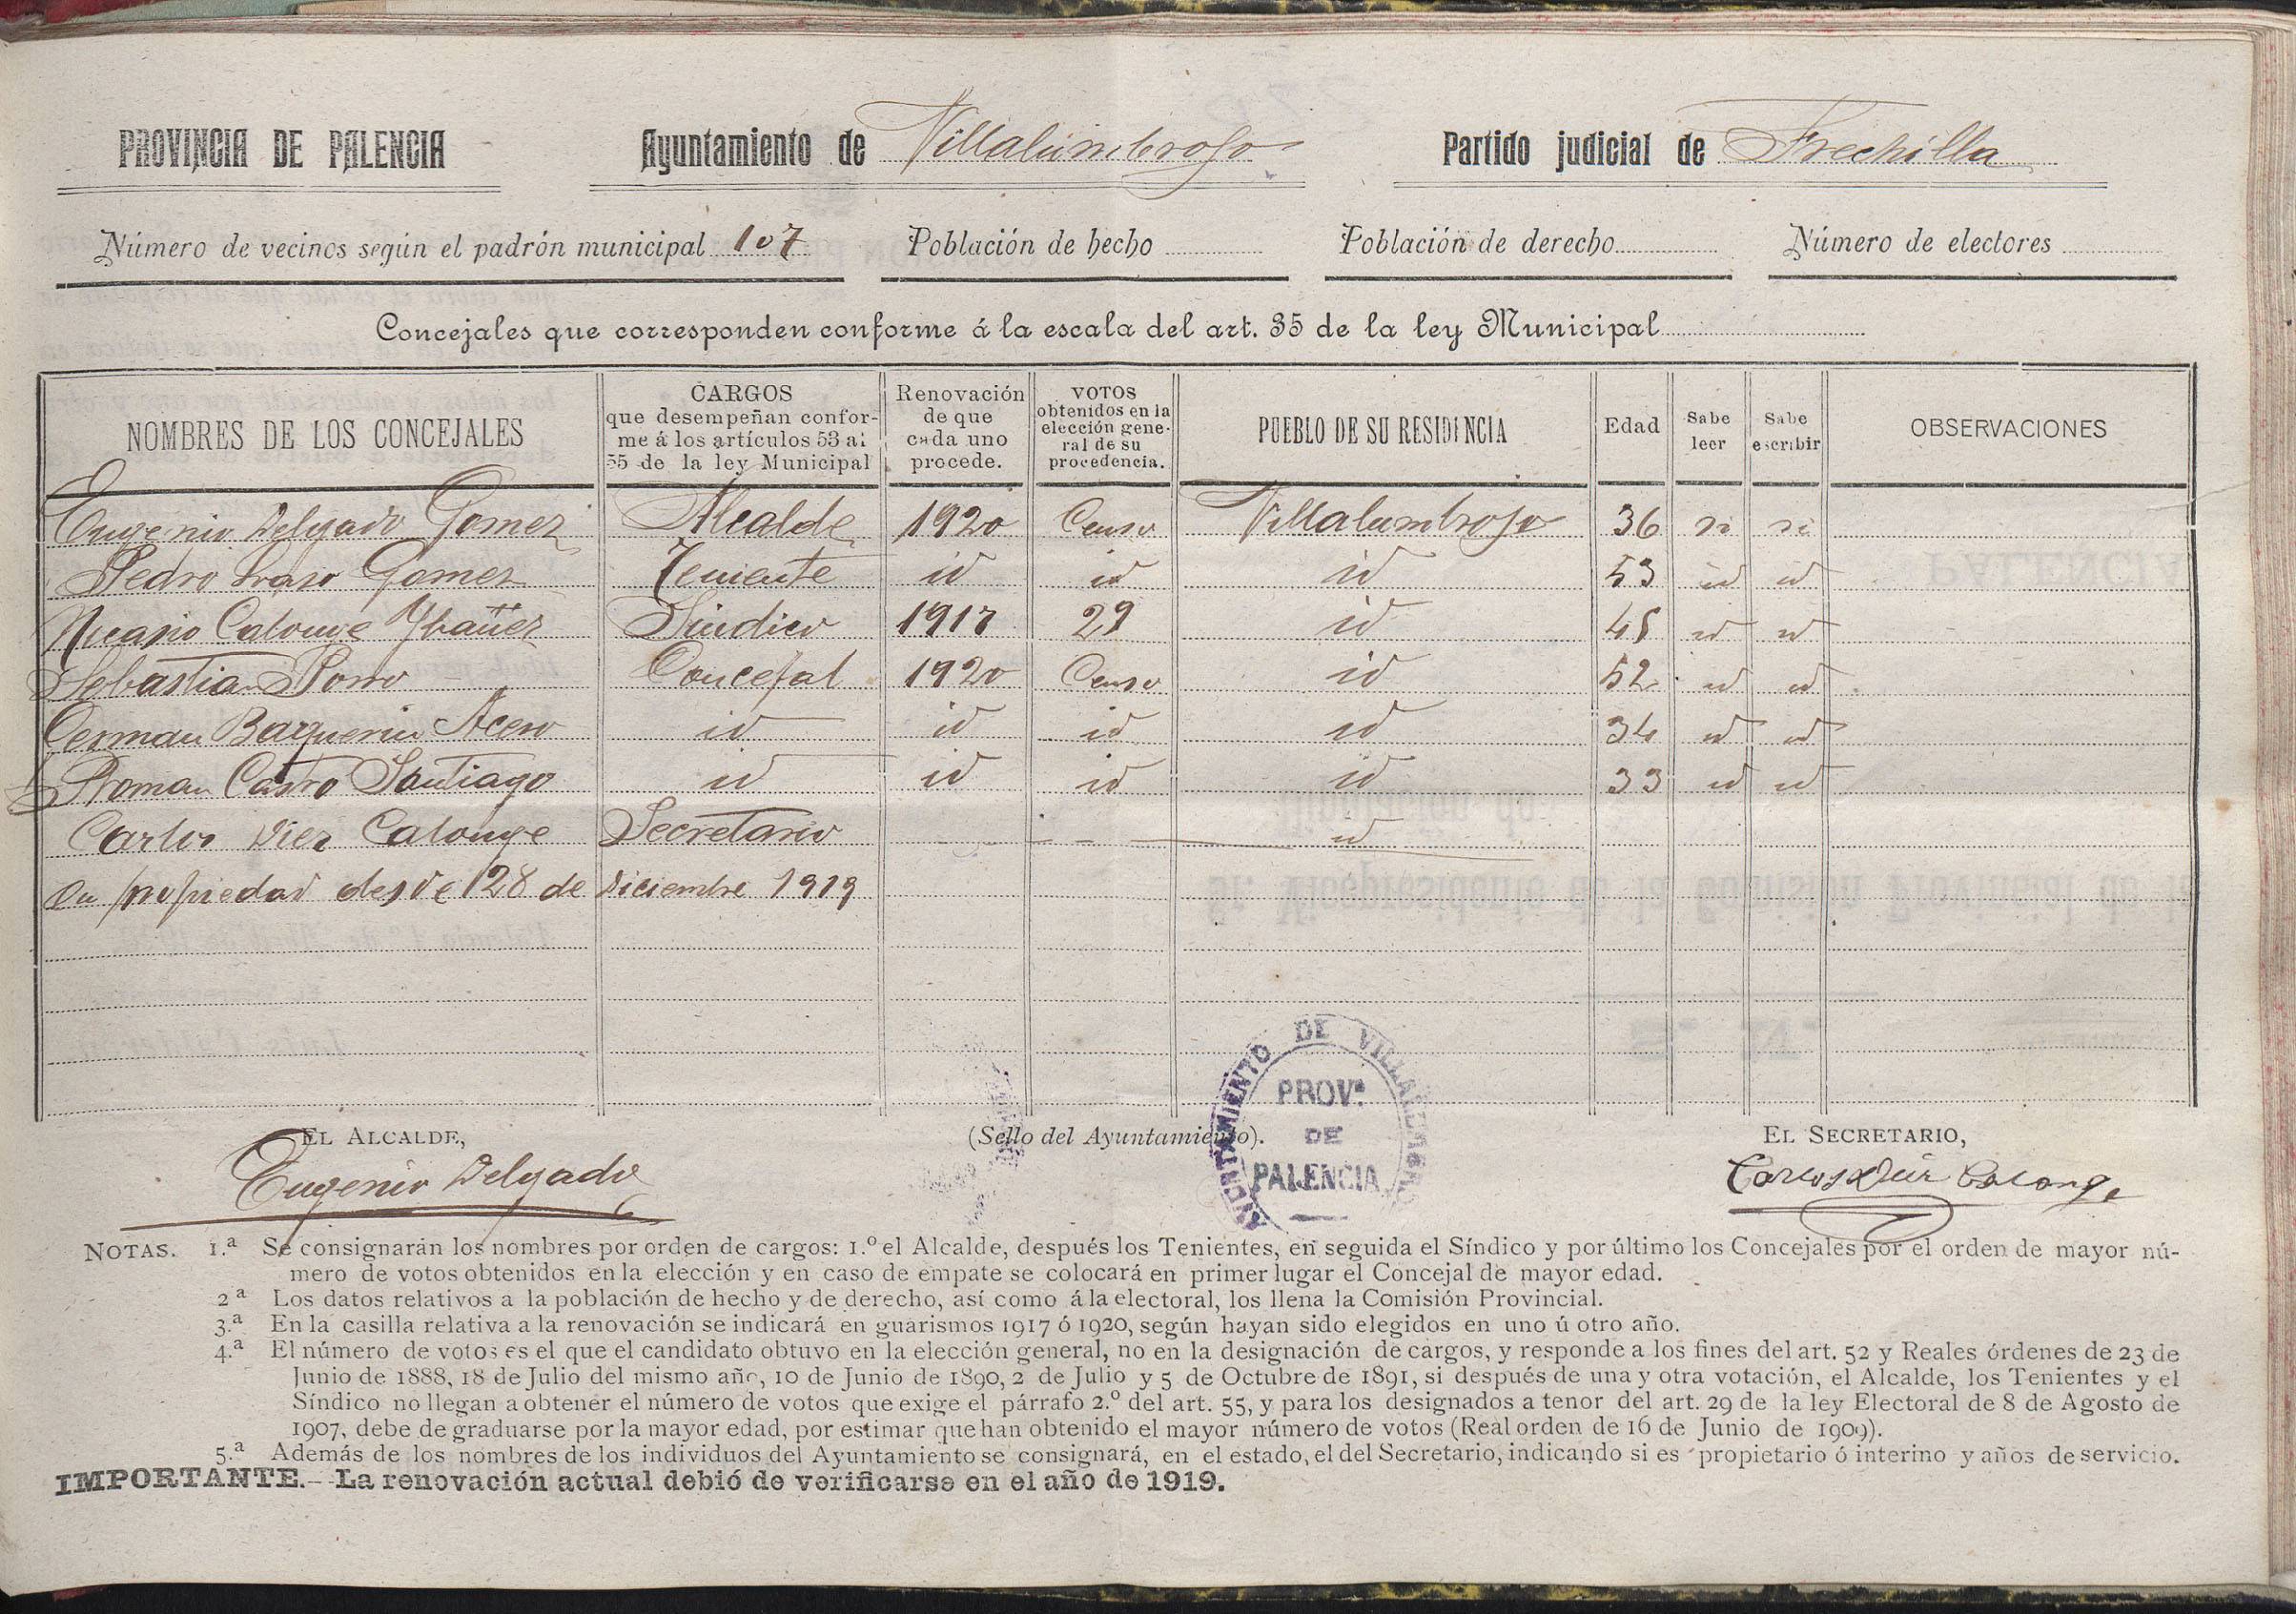 PROVINCIA DE PALENCIA Ayuntamiento de Villalumbroso Partido judicial de Frechilla
Número de vecinos según el padrón municipal 107 Población de hecho Población de derecho Número de electores
Concejales que corresponden conforme á la escala del art. 35 de la ley Municipal
NOMBRES DE LOS CONCEJALES CARGOS que desempeñan conforme á los artículos 53 al 55 de la ley Municipal Renovación de que cada uno procede. VOTOS obtenidos en la elección general de su procedencia. PUEBLO DE SU RESIDENCIA Edad Sabe leer Sabe escribir OBSERVACIONES
Eugenio Delgado Gomez Alcalde 1920 Censo Villalumbroso 36 si si
Pedro Laso Gomez Teniente id id id 53 id id
Nicasio Calonge Ybañez Sindico 1917 29 id 45 id id
Sebastian Porro Concejal 1920 Censo id 52 id id
German Baquerin Acero id id id id 34 id id
Roman Castro Santiago id id id id 33 id id
Carlos Diez Calonge Secretario id
En propiedad desde 28 de Diciembre 1919
EL ALCALDE, (Sello del Ayuntamiento). EL SECRETARIO,
AYUNTAMIENTO DE VILLALUMBROSO
PROVª DE PALENCIA
Eugenio Delgado Carlos Diez Calonge
NOTAS. 1.ª Se consignarán los nombres por orden de cargos: 1.º el Alcalde, después los Tenientes, en seguida el Síndico y por último los Concejales por el orden de mayor nú-
mero de votos obtenidos en la elección y en caso de empate se colocará en primer lugar el Concejal de mayor edad.
2ª Los datos relativos a la población de hecho y de derecho, así como á la electoral, los llena la Comisión Provincial.
3.ª En la casilla relativa a la renovación se indicará en guarismos 1917 ó 1920, según hayan sido elegidos en uno ú otro año.
4.ª El número de votos es el que el candidato obtuvo en la elección general, no en la designación de cargos, y responde a los fines del art. 52 y Reales órdenes de 23 de
Junio de 1888, 18 de Julio del mismo año, 10 de Junio de 1890, 2 de Julio y 5 de Octubre de 1891, si después de una y otra votación, el Alcalde, los Tenientes y el
Síndico no llegan a obtener el número de votos que exige el párrafo 2.º del art. 55, y para los designados a tenor del art. 29 de la ley Electoral de 8 de Agosto de
1907, debe de graduarse por la mayor edad, por estimar que han obtenido el mayor número de votos (Real orden de 16 de Junio de 1909).
5.ª Además de los nombres de los individuos del Ayuntamiento se consignará, en el estado, el del Secretario, indicando si es propietario ó interino y años de servicio.
IMPORTANTE.--La renovación actual debió de verificarse en el año de 1919.